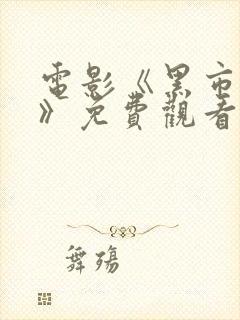 電影《黑市
》免費觀看
舞殤